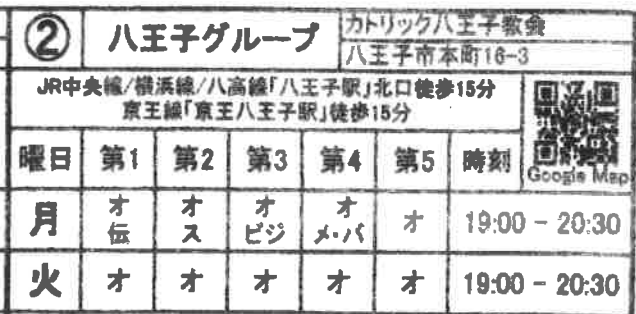 ② 八王子グループ
カトリック八王子教会
八王子市本町16-3
JR中央線/横浜線/八高線「八王子駅」北口徒歩15分
京王線「京王八王子駅」徒歩15分
Google Map
曜日 第1 第2 第3 第4 第5 時刻
月 オ伝 オス オビジ オメ・バ オ 19:00 - 20:30
火 オ オ オ オ オ 19:00 - 20:30